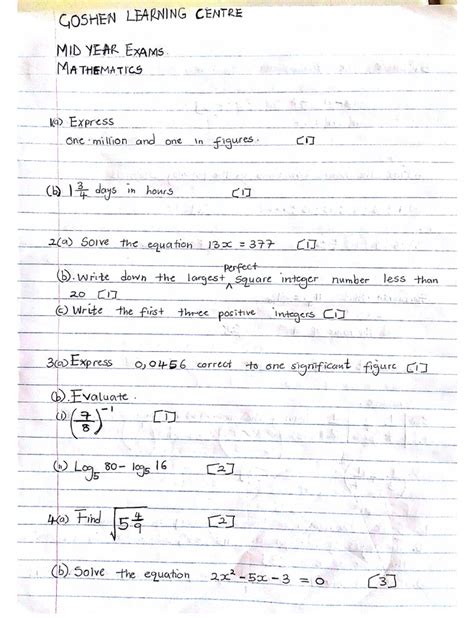 GOSHEN LEARNING CENTRE
MID YEAR EXAMS
MATHEMATICS
1(a) Express
one million and one in figures. [1]
(b) 1 3/4 days in hours [1]
2(a) Solve the equation 13x = 377 [1]
(b). Write down the largest perfect square integer number less than
20 [1]
(c) Write the first three positive integers [1]
3(a) Express 0,0456 correct to one significant figure [1]
(b). Evaluate.
(i) (7/8)^-1 [1]
(ii) Log₅ 80 – log₅ 16 [2]
4(a) Find √(5 4/9) [2]
(b). Solve the equation 2x² – 5x – 3 = 0 [3]